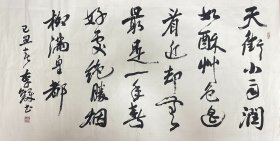 天街小雨润
如酥草色遥
看近却无
最是一年春
好处绝胜烟
柳满皇都
己丑春 李 书